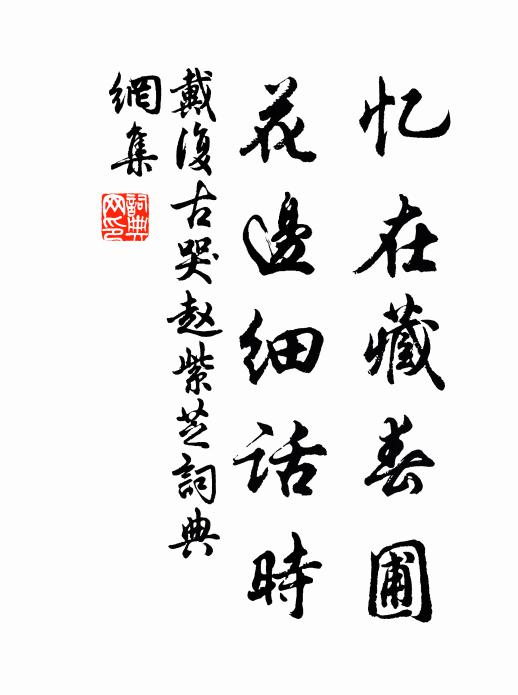 忆在藏春圃
花邊细话時
戴復古哭赵紫芝詞典
網集
詞典
网印